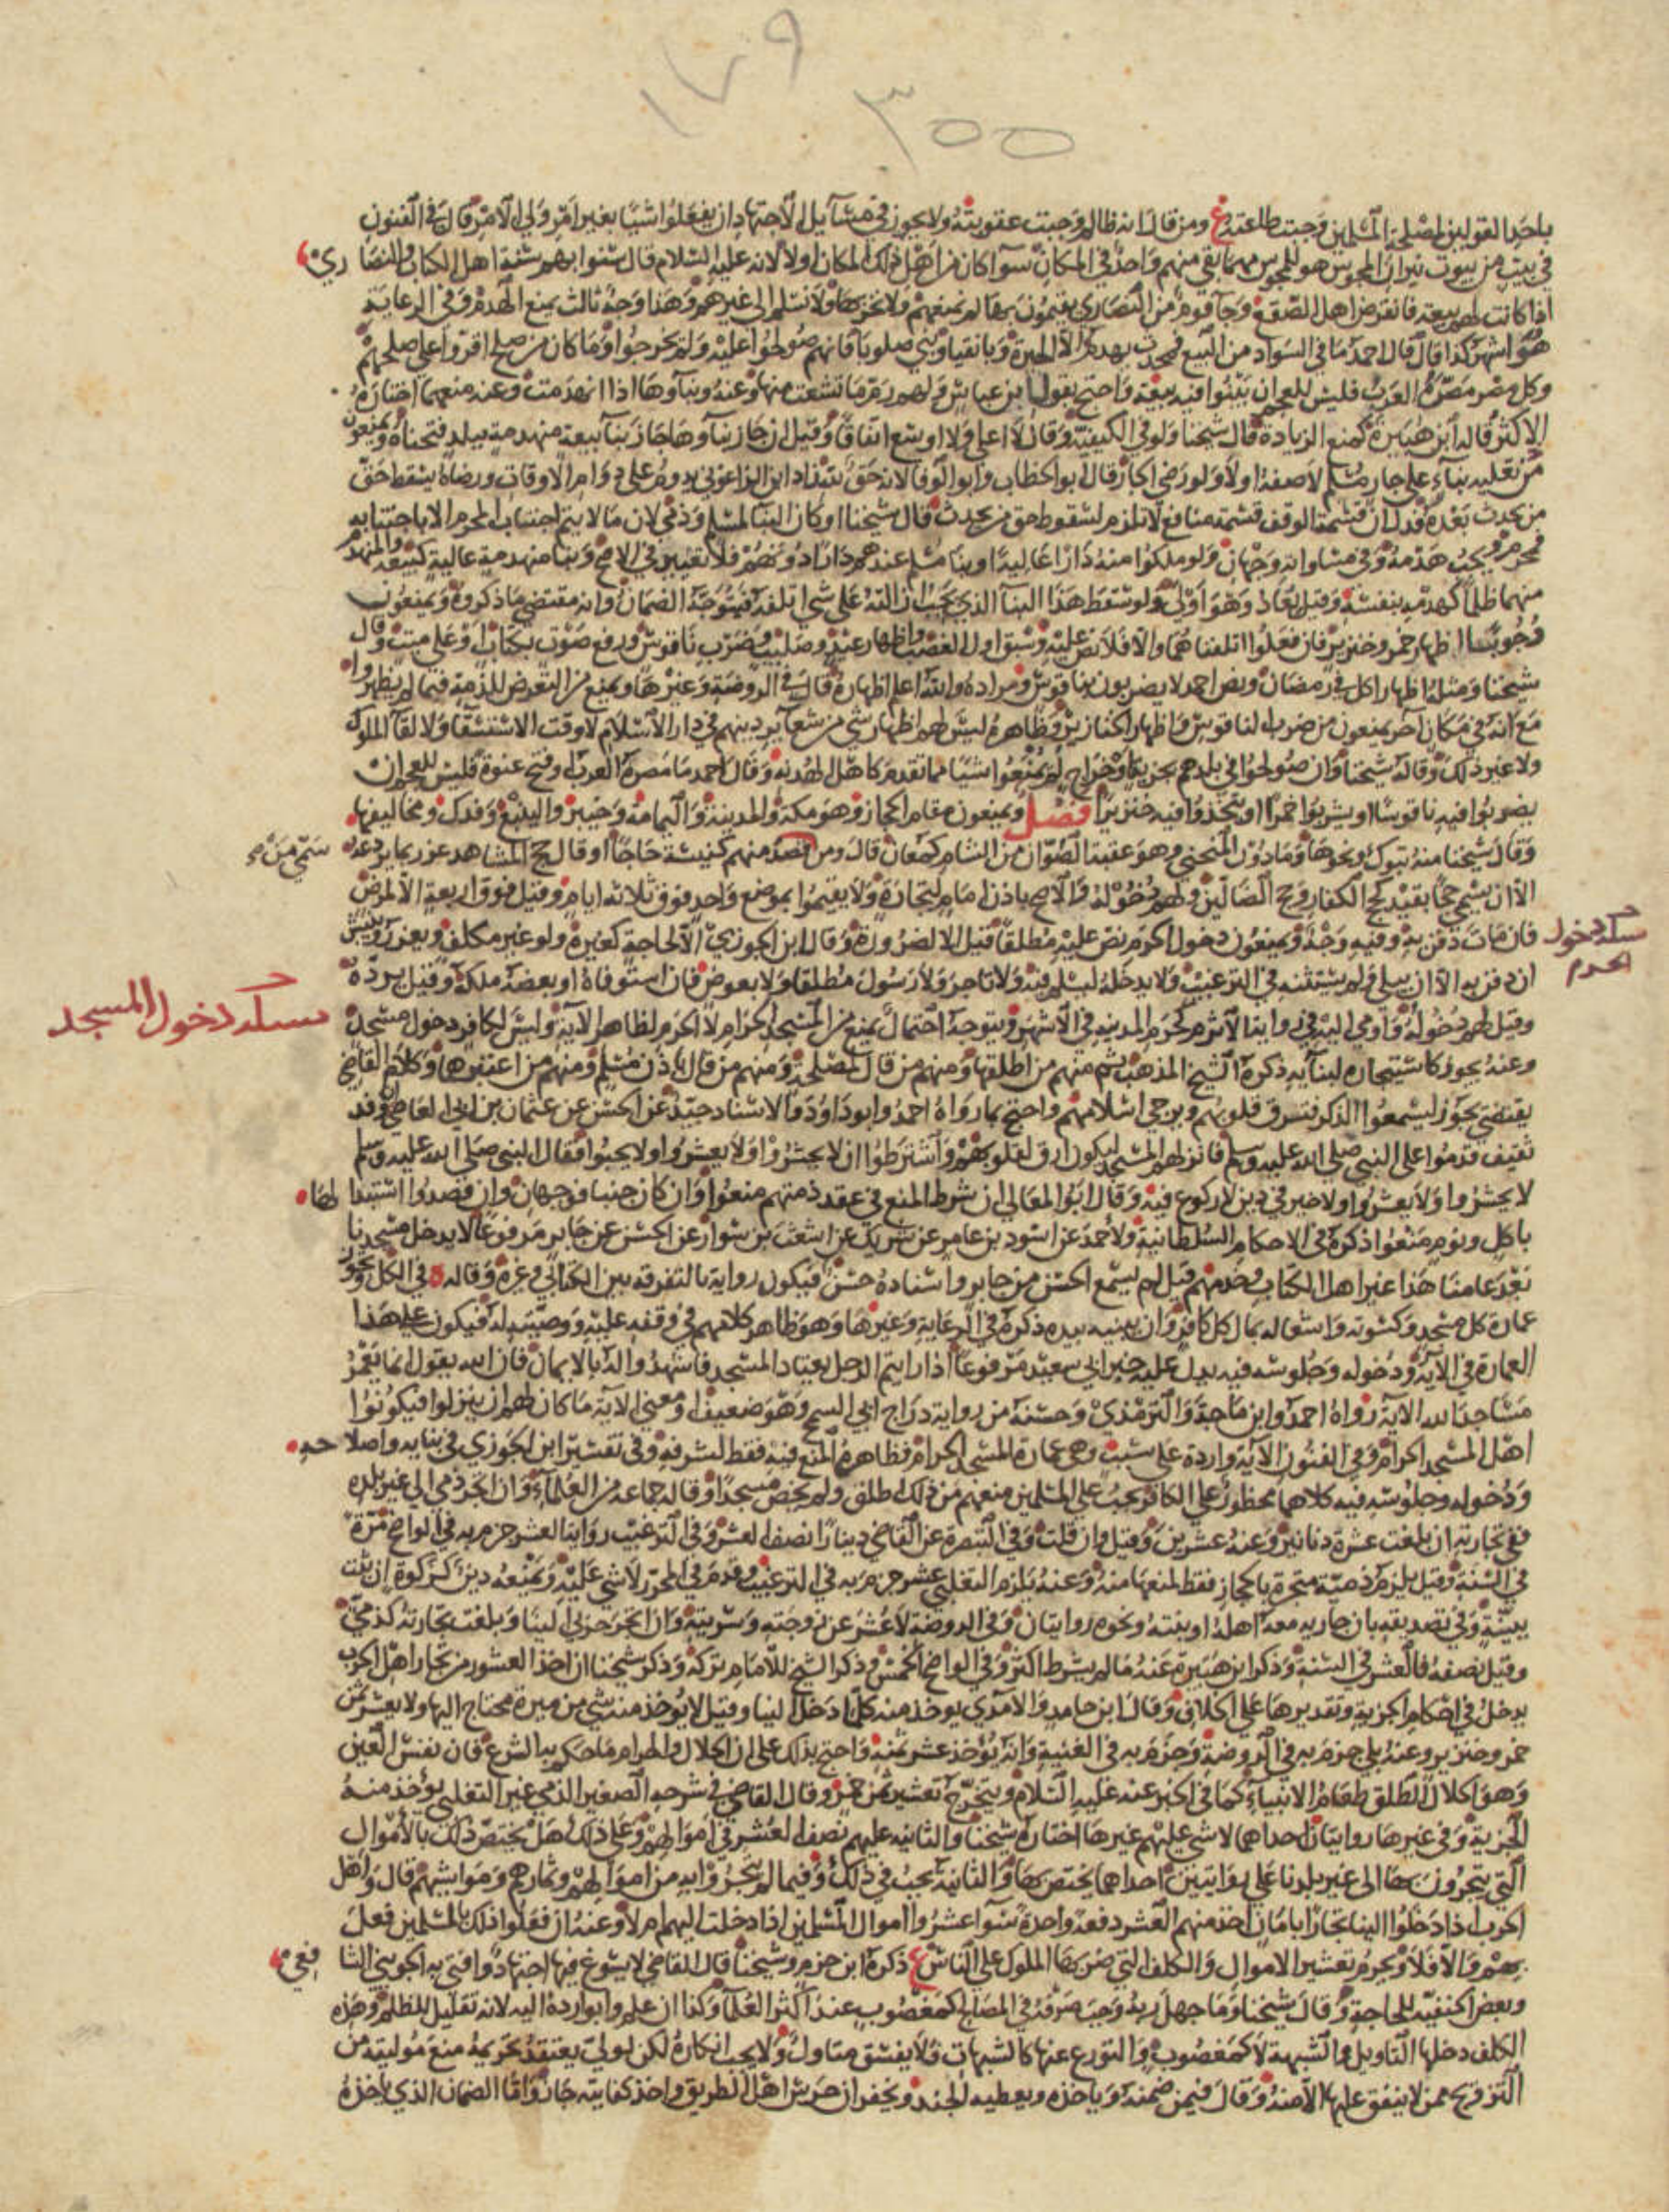 ١٧٩
٣٥٥
باحد القولين لمصلحة المسلمين وجبت طاعته ع ومن قال انه ظالم وجبت عقوبته ولا يجوز في مسايل الاجتهاد ان يفعلوا شيا بغير امر ولي الامر قال في الفنون
في بيت من بيوت نيران المجوس هو للمجوس مهما بقي منهم واحد في المكان سوا كان من اهل ذلك المكان اولا لانه عليه السلام قال سنوا بهم سنة اهل الكتاب والنصارى
اذا كانت لهم بيعة فانقرض اهل الصقع وجا قوم من النصارى يقيمون بها لم نمنعهم ولا نخربها ولا نسلم الى غيرهم وهذا وجه ثالث بمنع الهدم وفي الرعاية
هو اشهر كذا قال قال احمد ما في السواد من البيع فمحدث يهدم الا الحيرة وبانقيا وبني صلوبا فانهم صولحوا عليه ولم يخرجوا وما كان من صلح اقروا على صلحهم
وكل مصر مصره العرب فليس للعجم ان يبنوا فيه بيعة واحتج بقول ابن عباس ولهم رم ما تشعث منها وعنه وبناوها اذا انهدمت وعنه منعهما اختاره
الاكثر قاله ابن هبيرة كمنع الزيادة قال شيخنا ولو في الكيفية وقال لا اعلى ولا اوسع اتفاقا وقيل ان جاز بناوها جاز بنا بيعة منهدمة ببلد فتحناه ويمنعون
من تعلية بناء على جار مسلم لاصقه اولا ولو رضي الجار قال ابو الخطاب وابو الوفا لانه حق لله زاد ابن الزاغوني يدوم على دوام الاوقات ورضاه يسقط حق
من يحدث بعده فدل ان قسمة الوقف قسمة منافع لا تلزم لسقوط حق من يحدث قال شيخنا او كان البنا لمسلم وذمي لان ما لا يتم اجتناب المحرم الا باجتنابه
فمحرم ويجب هدمه وفي مساواته وجهان ولو ملكوا منه دارا عالية او بنا مسلم عندهم دارا دونهم فلا تغيير في الاصح وبنا منهدمة عالية كبيعة والمنهدم
منهما ظلما كهدمه بنفسه وقيل يعاد وهو اولى ولو سقط هذا البنا الذي يجب ازالته على شي اتلفه فيتوجه الضمان وانه مقتضى ما ذكروه ويمنعون
وجوبا اظهار خمر وخنزير فان فعلوا اتلفناهما والا فلا نص عليه وسبق اول الغصب واظهار عيد وصليب وضرب ناقوس ورفع صوت بكتاب او على ميت وقال
شيخنا ومثله اظهار اكل في رمضان ونص احمد لا يضربون بناقوس ومراده والله اعلم اظهاره قال في الروضة وغيرها ويمنع من التعرض للذمة فيما لم يظهروا
مع انه في مكان اخر يمنعون من ضرب الناقوس واظهار الخنازير وظاهره ليس لهم اظهار شي من شعاير دينهم في دار الاسلام لا وقت الاستسقا ولا لقا الملوك
ولا غير ذلك وقاله شيخنا وان صولحوا في بلدهم بجزية او خراج لم يمنعوا شيا مما تقدم كاهل الهدنة وقال احمد ما مصره العرب او فتح عنوة فليس للعجم ان
يضربوا فيه ناقوسا او يشربوا خمرا او يتخذوا فيه خنزيرا فصل ويمنعون مقام الحجاز وهو مكة والمدينة واليمامة وخيبر والينبع وفدك ومخاليفها
وقال شيخنا منه تبوك ونحوها وما دون المنحنى وهو عقبة الصوان من الشام كمعان قال ومن قصد منهم كنيسة حاجا او قال حج المشاهد عزر بما يردعه
الا ان يسمي حجا بقيد كحج الكفار وحج الضالين ولهم دخوله والاصح باذن امام لتجارة ولا يقيموا بموضع واحد فوق ثلاثة ايام وقيل فوق اربعة الا لمرض
سلدخول
الحرم
فان مات دفن به وفيه وجه ويمنعون دخول الحرم نص عليه مطلقا قيل الا لضرورة وقال ابن الجوزي الا لحاجة كغيره ولو غير مكلف ويعزر وينبش
ان دفن به الا ان يبلى ولم يستثنه في الترغيب ولا يدخله ليسلم فيه ولا تاجر ولا رسول مطلقا ولا بعوض فان استوفاه او بعضه ملكه وقيل يرده
مسلد دخول المسجد
وقيل لهم دخوله واومى اليه في رواية الاثرم كحرم المدينة في الاشهر ويتوجه احتمال يمنع من المسجد الحرام لا الحرم لظاهر الاية وليس لكافر دخول مسجد
وعنه يجوز كاستيجاره لبنايه ذكره الشيخ المذهب ثم منهم من اطلقها ومنهم من قال لمصلحة ومنهم من قال باذن مسلم ومنهم من اعتبرهما وكلام القاضي
يقتضي يجوز ليسمعوا الذكر فترق قلوبهم ويرجى اسلامهم واحتج بما رواه احمد وابو داود والاسناد جيد عن الحسن عن عثمان بن ابي العاص ان وفد
ثقيف قدموا على النبي صلى الله عليه وسلم فانزلهم المسجد ليكون ارق لقلوبهم واشترطوا ان لا يحشروا ولا يعشروا ولا يجبوا فقال النبي صلى الله عليه وسلم
لا يحشروا ولا يعشروا ولا خير في دين لا ركوع فيه وقال ابو المعالي ان شرط المنع في عقد ذمتهم منعوا وان كان جنبا فوجهان وان قصدوا استبدالها
باكل ونوم منعوا ذكره في الاحكام السلطانية ولاحمد عن اسود بن عامر عن شريك عن اشعث بن سوار عن الحسن عن جابر مرفوعا لا يدخل مسجدنا
بعد عامنا هذا غير اهل الكتاب وخدمهم قيل لم يسمع الحسن من جابر واسناده حسن فيكون رواية بالتفرقة بين الكتابي وغيره وقاله ه في الكل ويجوز
عمارة كل مسجد وكسوته واشعاله بمال كل كافر وان يبنيه بيده ذكره في الرعاية وغيرها وهو ظاهر كلامهم في وقفه عليه ووصيته له فيكون على هذا
العمارة في الاية ودخوله وجلوسه فيه يدل عليه خبر ابي سعيد مرفوعا اذا رايتم الرجل يعتاد المسجد فاشهدوا له بالايمان فان الله يقول انما يعمر
مساجد الله الاية رواه احمد وابن ماجة والترمذي وحسنه من رواية دراج ابي السمح وهو ضعيف ومعنى الاية ما كان لهم ان يتركوا فيكونوا
اهل المسجد الحرام وفي الفنون الاية واردة على سبب وهي عمارة المسجد الحرام فظاهره المنع فيه فقط لشرفه وفي تفسير ابن الجوزي في بنايه واصلاحه
ودخوله وجلوسه فيه كلاهما محظور على الكافر يجب على المسلمين منعهم من ذلك اطلق ولم يخص مسجدا وقاله جماعة من العلماء وان اتجر ذمي الى غير بلده
ففي تجارته ان بلغت عشرة دنانير وعنه عشرين وقيل وان قلت وفي التبصرة عن القاضي دينارا نصف العشر وفي الترغيب رواية العشر جزم به في الواضح مرة
في السنة وقيل يلزم ذمية متجرة بالحجاز فقط لمنعها منه وعنه يلزم التغلبي عشر جزم به في الترغيب وقدم في المحرر لا شي عليه ويمنعه دين كزكوة ان ثبت
ببينة وفي تصديقه بان جارية معه اهله او بنته ونحوه روايتان وفي الروضة لا عشر عن زوجته وسريته وان اتجر حربي الينا وبلغت تجارته كذمي
وقيل نصفه فالعشر في السنة وذكر ابن هبيرة عنه ما لم يشرط اكثر وفي الواضح الخمس وذكر الشيخ للامام تركه وذكر شيخنا ان اخذ العشور من تجار اهل الحرب
يدخل في احكام الجزية وتقديرها على الخلاف وقال ابن حامد والامدي يوخذ منه كلما دخل الينا وقيل لا يوخذ منه شي من ميرة محتاج اليها ولا يعشر ثمن
خمر وخنزير وعنه بلى جزم به في الروضة وجزم به في الغنية وانه يوخذ عشر ثمنه واحتج بذلك على ان الحلال والحرام ما حكم به الشرع فان نفس العين
وهو الحلال الطلق طعام الانبياء كما في الخبر عنه عليه السلام ويتخرج تعشير ثمن خمر وقال القاضي في شرحه الصغير الذمي غير التغلبي يوخذ منه
الجزية وفي غيرها روايتان احداهما لا شي عليهم غيرها اختاره شيخنا والثانية عليهم نصف العشر في اموالهم وعلى ذلك هل يختص ذلك بالاموال
التي يتجرون بها الى غير بلدنا على روايتين احداهما يختص بها والثانية يجب في ذلك وفيما لم يتجروا به من اموالهم وثمارهم ومواشيهم قال واهل
الحرب اذا دخلوا الينا تجارا بامان اخذ منهم العشر دفعة واحدة سوا عشروا اموال المسلمين اذا دخلت اليهم ام لا وعنه ان فعلوا ذلك بالمسلمين فعل
بهم والا فلا ويحرم تعشير الاموال والكلف التي ضربها الملوك على الناس ع ذكره ابن حزم وشيخنا قال القاضي لا يسوغ فيها اجتهاد وافتى به الجويني الشافعي
وبعض الحنفية للحاجة وقال شيخنا وما جهل ربه وجب صرفه في المصالح كمغصوب عند اكثر العلما وكذا ان علم وابوا رده اليه لانه تقليل للظلم وهذه
الكلف دخلها التاويل والشبهة لا كمغصوب والتورع عنها كالشبهات ولا يفسق متاول ولا يجب انكاره لكن لولي يعتقد تحريمه منع موليته من
التزويج ممن لا ينفق عليها الا منه وقال فيمن ضمنه وياخذه ويعطيه الجند ويخفر ان حرس اهل الطريق واخذ كفايته جاز واما الضمان الذي ياخذه